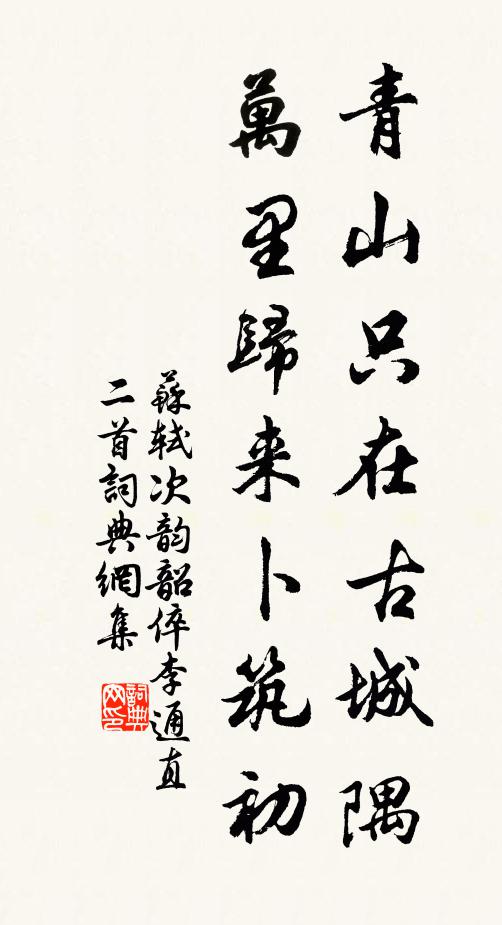 青山只在古城隅
萬里歸来卜筑初
蘇軾次韵韶倅李通直
二首詞典網集
詞典網印